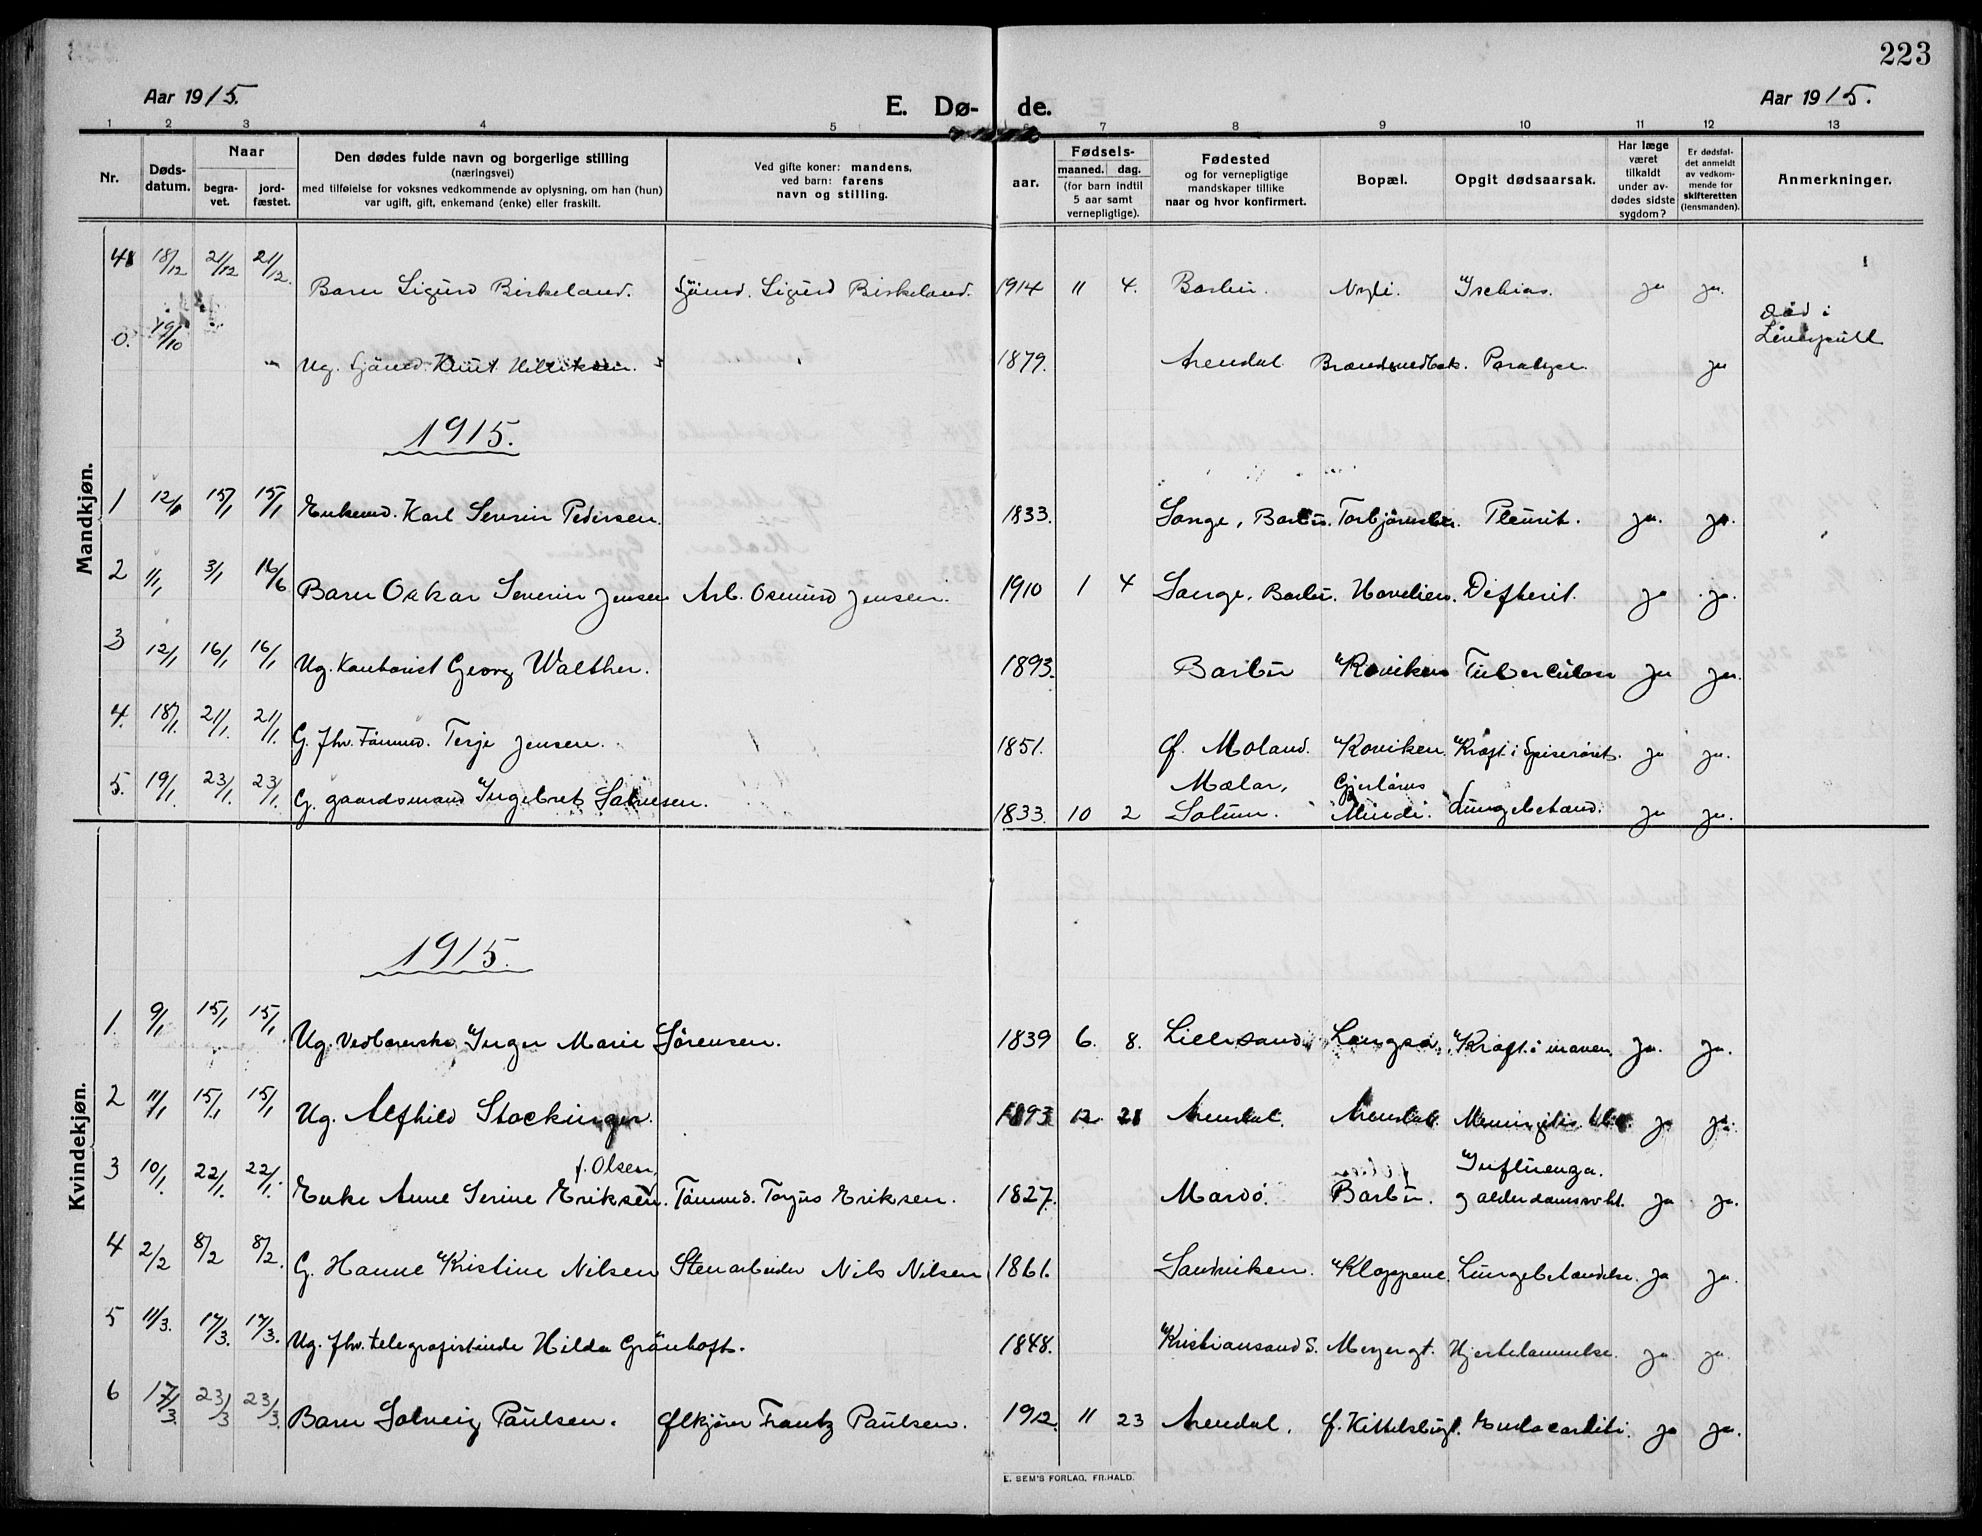 223
Aar 1915. E. Dø- de. Aar 1915.
1 2 3 4 5 6 7 8 9 10 11 12 13
Nr. Døds-datum. Naar begra-vet. jord-fæstet. Den dødes fulde navn og borgerlige stilling (næringsvei) med tilføielse for voksnes vedkommende av oplysning, om han (hun) var ugift, gift, enkemand (enke) eller fraskilt. Ved gifte koner: mandens, ved barn: farens navn og stilling. Fødsels- aar. maaned. dag. (for barn indtil 5 aar samt vernepligtige). Fødested og for vernepligtige mandskaper tillike naar og hvor konfirmert. Bopæl. Opgit dødsaarsak. Har læge været tilkaldt under av-dødes sidste sygdom? Er dødsfal-det anmeldt av vedkom-mende for skifteretten (lensmanden). Anmerkninger.
Mandkjøn.
48 18/12 21/12 21/12. Barn Sigurd Birkeland. Sjömd. Sigurd Birkeland. 1914 11 4. Barbu. Nyli. Ischias. ja ja.
0. 19/10 Ug. Sjömd. Knut 1879. Arendal. Paralyse. ja Död i
1915.
1 12/1 15/1 15/1 Enkemd. Karl Severin Pedersen. 1833. Songe, Barbu. Pleurit. ja. ja.
2 1/1 3/1 16/6 Barn Oskar Severin Jensen Arb. Osmund Jensen. 1910 1 4 Songe, Barbu. Havelien. Difterit. ja ja.
3 12/1 16/1 16/1 Ug. Kontorist Georg Walther. 1893. Barbu Koviken Tuberculose ja ja.
4. 18/1. 21/1. 21/1. G. fhv. Tömmd. Terje Jensen. 1851. Ö. Moland. Koviken. Kræft i Spiserøret. ja ja.
5. 19/1. 23/1. 23/1. G. gaardsmand Ingebret Salvesen. 1833. 10 2 Mælar, Solum. Minde. Lungebetænd. ja ja.
Kvindekjøn.
1915.
1. 9/1 15/1 15/1 Ug. Vedbærerske Inger Marie Sørensen. 1839 6. 8. Lillesand. Langsæ. Kræft i maven. ja. ja.
2 11/1 15/1 15/1 Ug. Alfhild Stockinger. 1893 12 21 Arendal. Arendal. Meningitis ja ja.
3 10/1. 22/1. 22/1. Enke Anne Serine Eriksen f. Olsen. Tömmd. Torjus Eriksen. 1827. Mardö. Barbu. Influenza. og alderdomssvkt. ja ja.
4 2/2 8/2 8/2. G. Hanne Kristine Nilsen Stenarbeider Nils Nilsen 1861. Sandviken. Kloppene. Lungebetændelse. ja ja.
5 11/3. 17/3. 17/3. Ug. fhv. telegrafistinde Hilda Grönhoft. 1848. Kristiansand S. Meyergt. Hjertelammelse. ja. ja.
6 17/3. 23/3 23/3 Barn Solveig Paulsen. Ølkjører Frantz Paulsen. 1912. 11 23 Arendal. Ö. Kittelsbugt. Endocarditi. ja ja.
E. SEM'S FORLAG, FR.HALD.